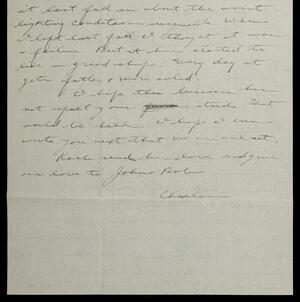 it last fall in about the worst
lighting conditions imaginable. When
I left last fall I thought it was
a failure. But it has started to
live in grand shape. Every day it
gets fatter & more solid.
I hope this business has
not upset your studs. That
would be hell. I hope I can
write you next that we are all set.
send her love and give
our love to John & Bob